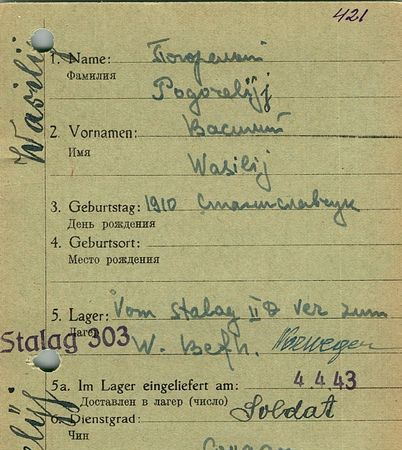 421
Wasilij
1. Name: Погорелый
Фамилия
Pogorelyj
2. Vornamen: Василий
Имя
Wasilij
3. Geburtstag: 1910
День рождения
4. Geburtsort:
Место рождения
5. Lager: Vom Stalag II ver zum
Лагерь
Stalag 303
W. Befh. Norwegen
5a. Im Lager eingeliefert am: 4.4.43
Доставлен в лагер (число)
6. Dienstgrad: Soldat
Чин